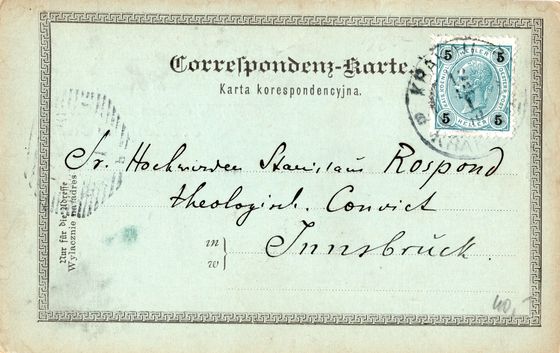 Correspondenz-Karte.
Karta korespondencyjna.
KRAK
5 5
5 5
HELLER
Sr. Hochwürden Stanislaus Rospond
theologisch. Convict
in
w } Innsbruck.
Nur für die Adresse
Wyłącznie na adres
40,-